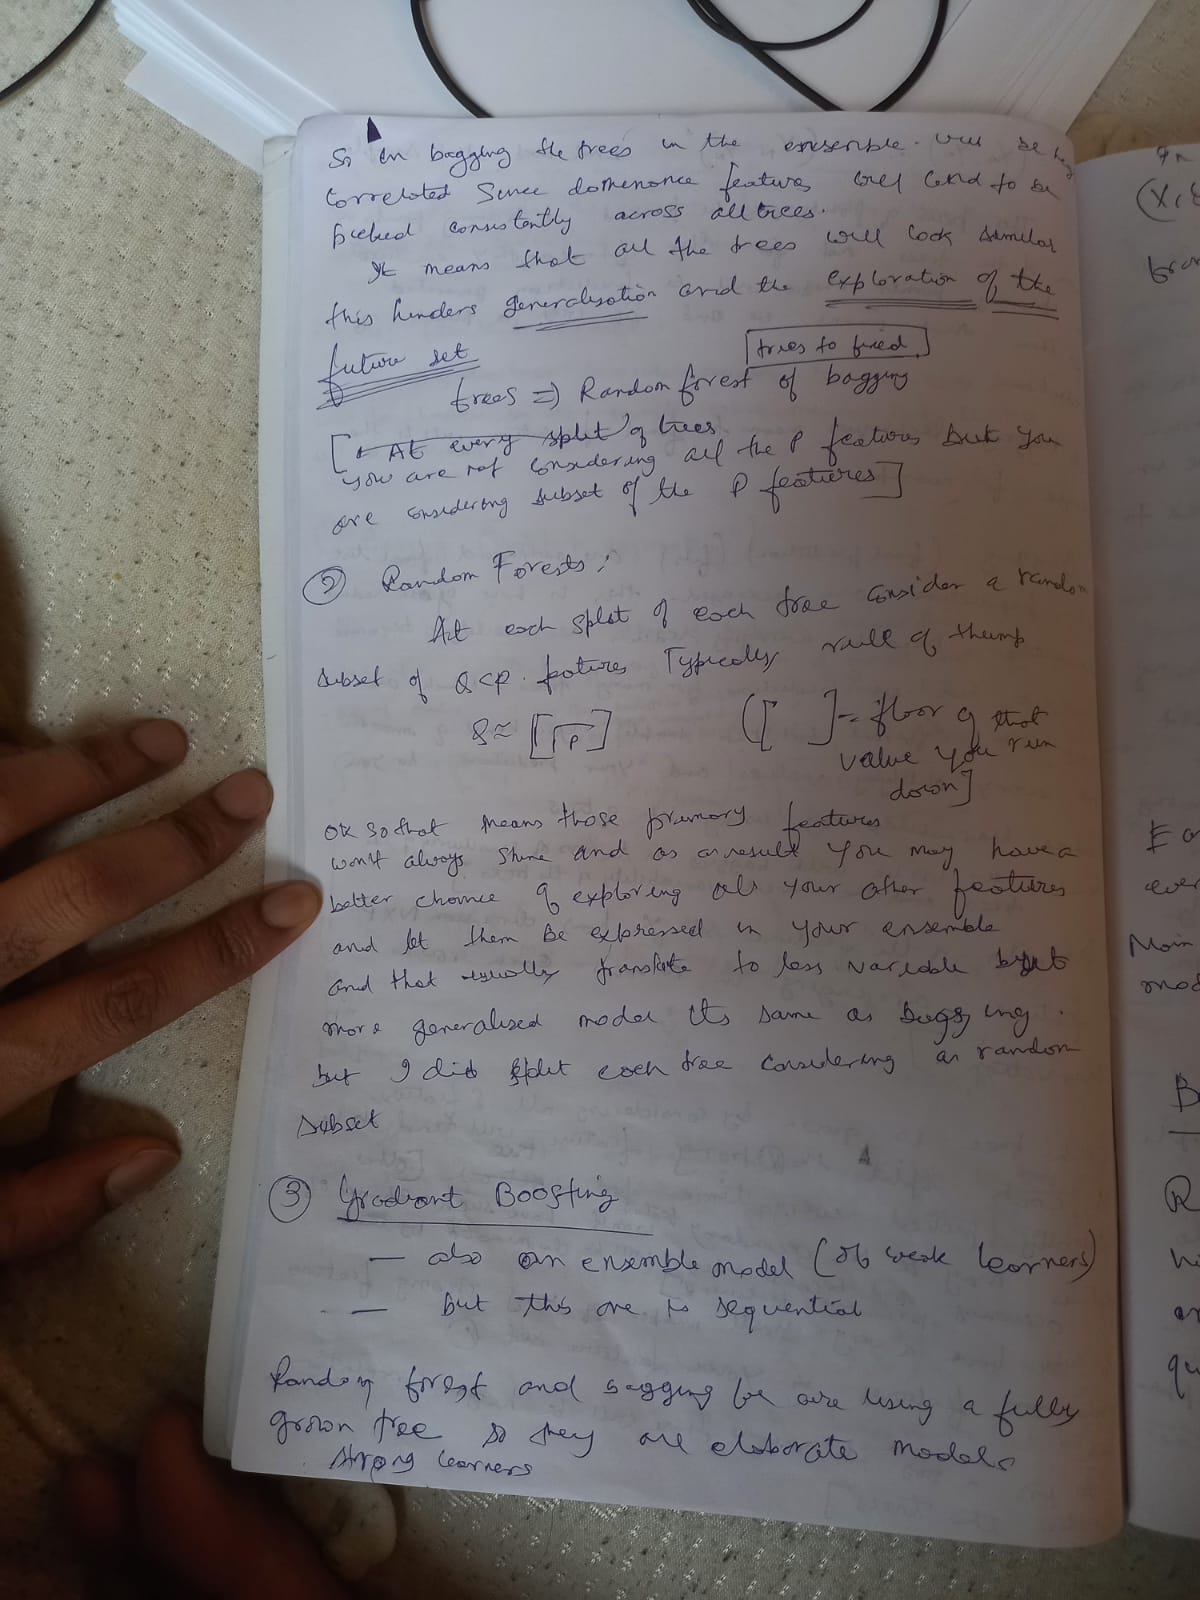 So in bagging the trees in the ensemble. will be
correlated Since dominance features will tend to be
picked consistently across all trees.
It means that all the trees will look similar
this hinders generalisation and the exploration of the
future set
trees to fixed
trees => Random forest of bagging
[* At every split of trees
you are not considering all the P features but you
are considering subset of the P features]
② Random Forests:
At each split of each tree consider a random
subset of Q<P. features Typically rule of thump
Q ≈ [√P] ([ ] = floor of that
value you run
down]
OK so that means those primary features
won't always shine and as a result you may have a
better chance of exploring all your other features
and let them be expressed in your ensemble
and that usually translate to less variable but
more generalised model its same as bagging.
but I did split each tree considering an random
subset
③ Gradient Boosting
— also an ensemble model (of weak learners)
— but this one is sequential
Random forest and bagging be are using a fully
grown tree so they are elaborate models
strong learners
In
(x,
E
ever
Main
mod
B
R
hi
qu